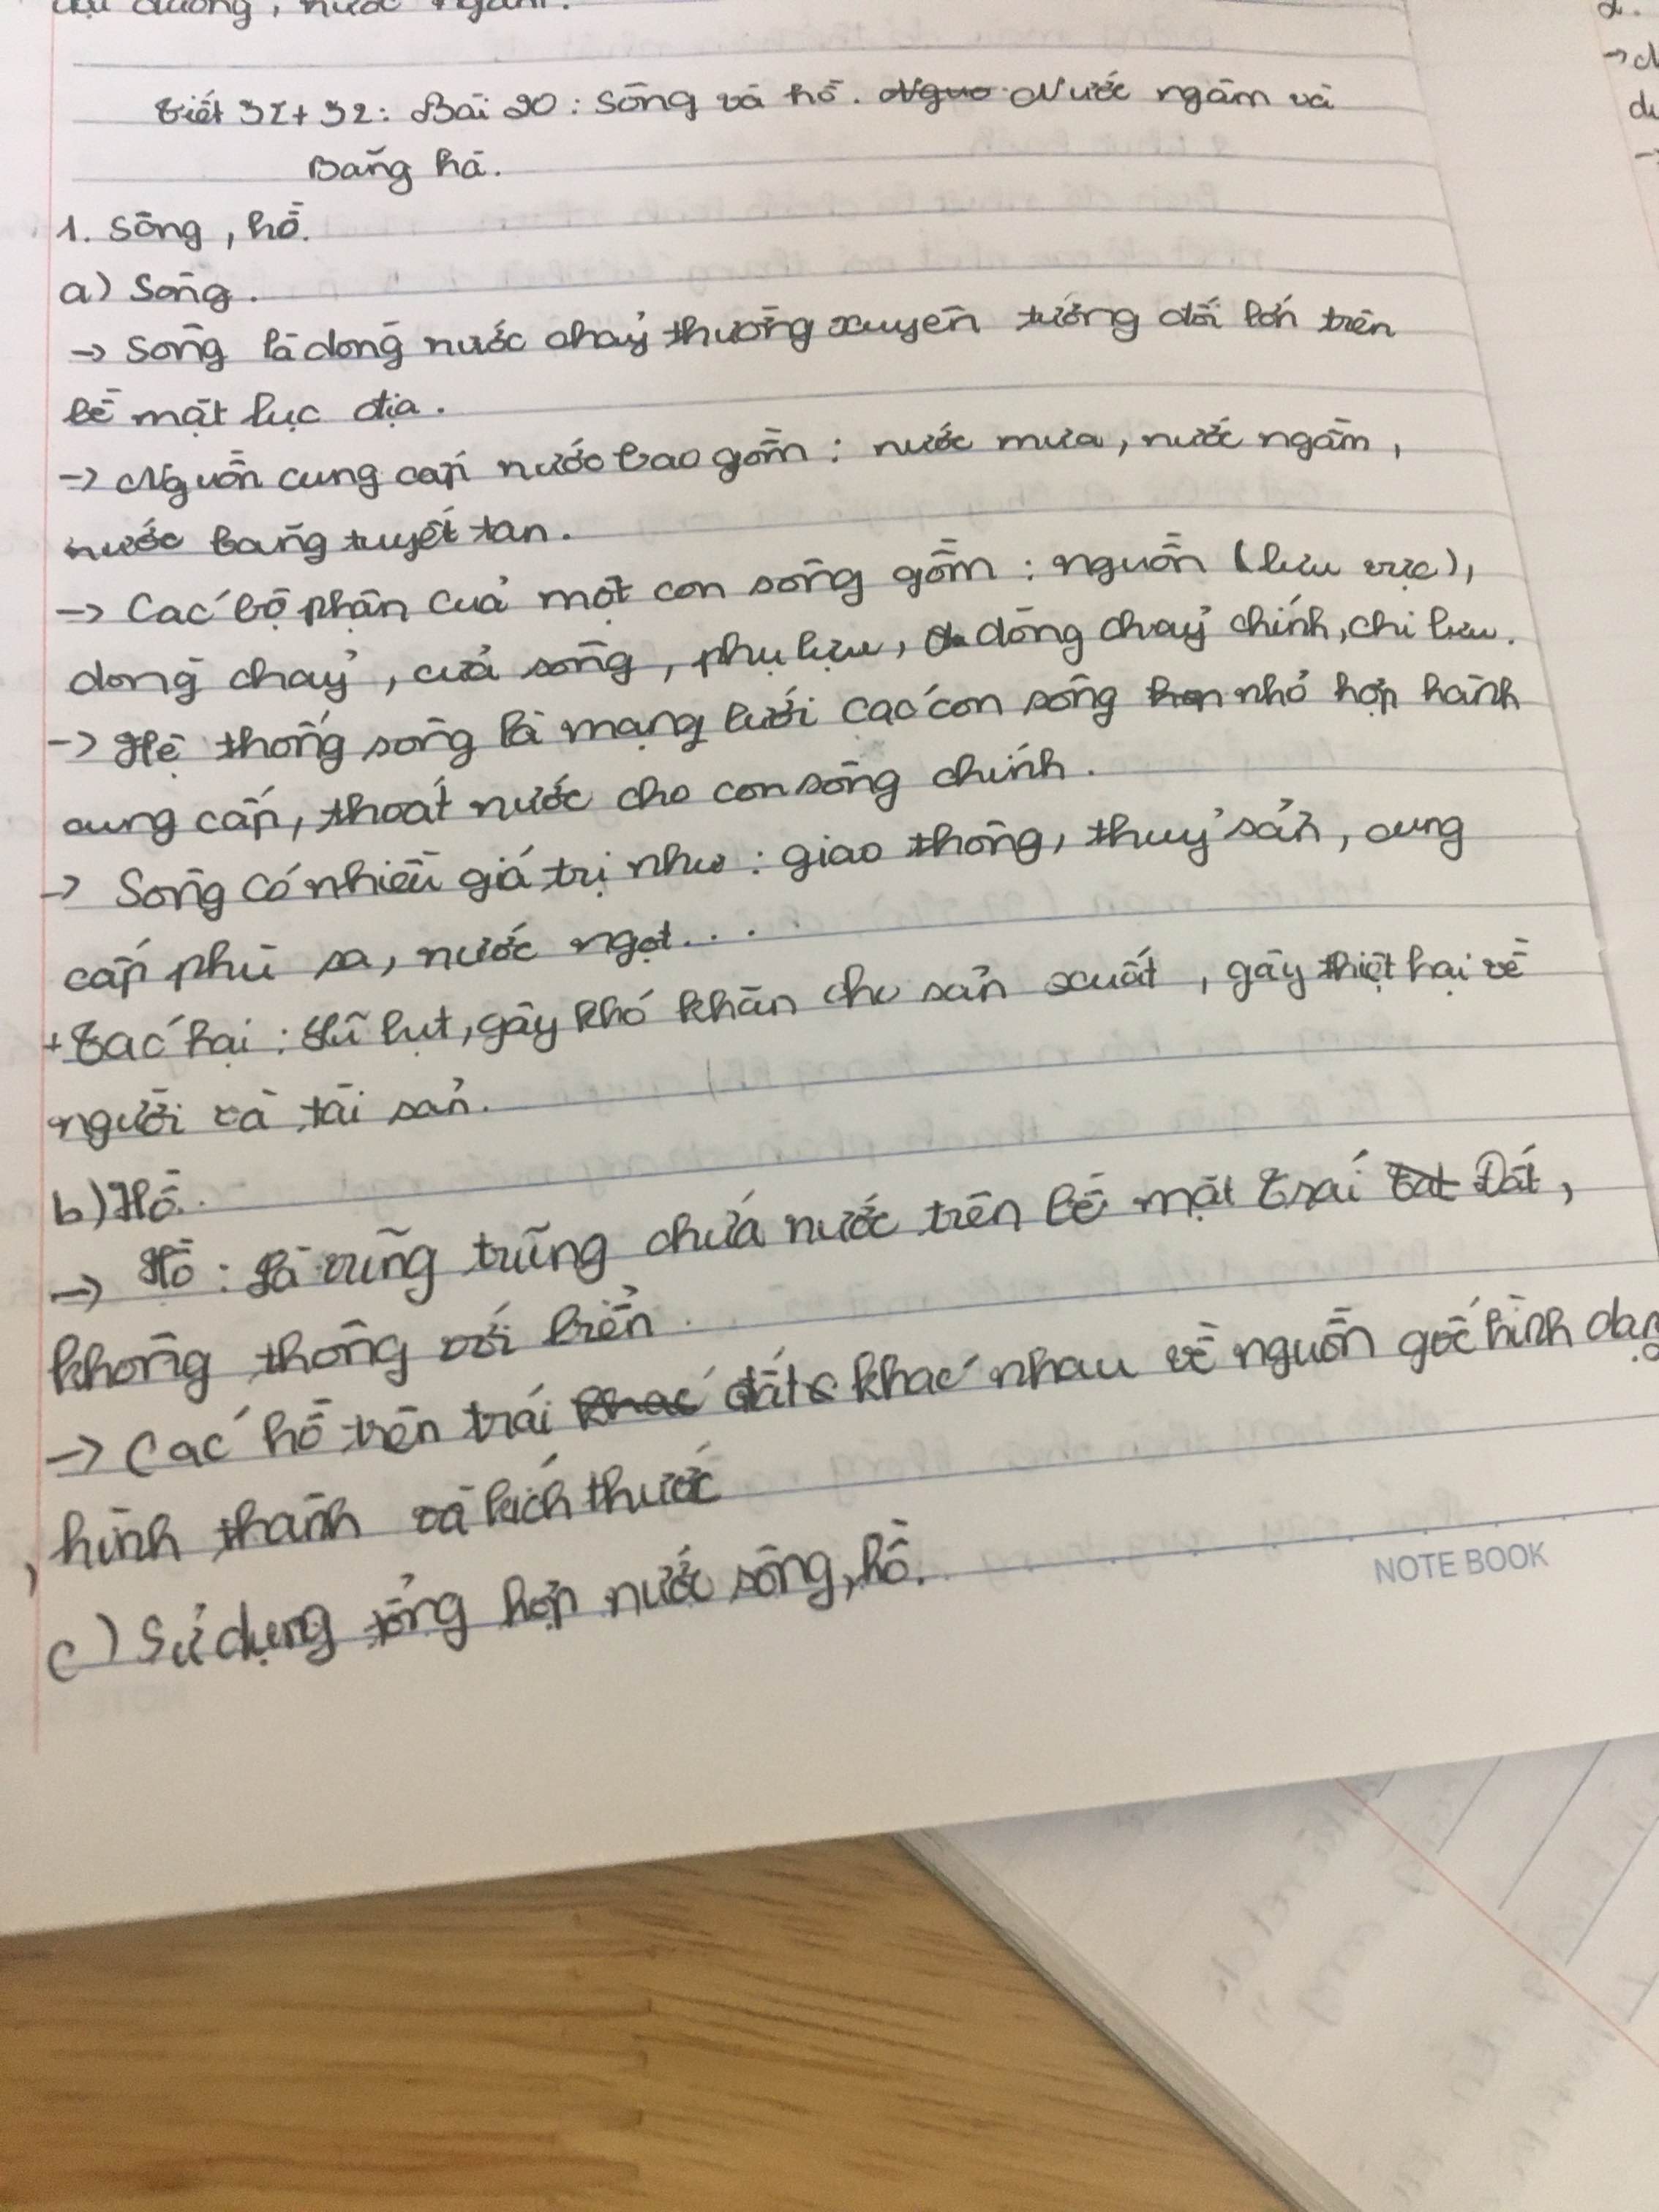 đại dương, nước ngầm.
Tiết 31+32: Bài 20: Sông và hồ. Nước ngầm và
Băng hà.
1. Sông, hồ.
a) Sông.
-> Sông là dòng nước chảy thường xuyên tương đối lớn trên
bề mặt lục địa.
-> Nguồn cung cấp nước bao gồm: nước mưa, nước ngầm,
nước băng tuyết tan.
-> Các bộ phận của một con sông gồm: nguồn (lưu vực),
dòng chảy, cửa sông, phụ lưu, dòng chảy chính, chi lưu.
-> Hệ thống sông là mạng lưới các con sông nhỏ hợp hành
cung cấp, thoát nước cho con sông chính.
-> Sông có nhiều giá trị như: giao thông, thuỷ sản, cung
cấp phù sa, nước ngọt...
+ Tác hại: Lũ lụt, gây khó khăn cho sản xuất, gây thiệt hại về
người và tài sản.
b) Hồ.
-> Hồ: Là vùng trũng chứa nước trên bề mặt Trái Đất,
không thông với biển.
-> Các hồ trên trái đất khác nhau về nguồn gốc hình dạng
, hình thành và kích thước
c) Sử dụng tổng hợp nước sông, hồ.
NOTE BOOK